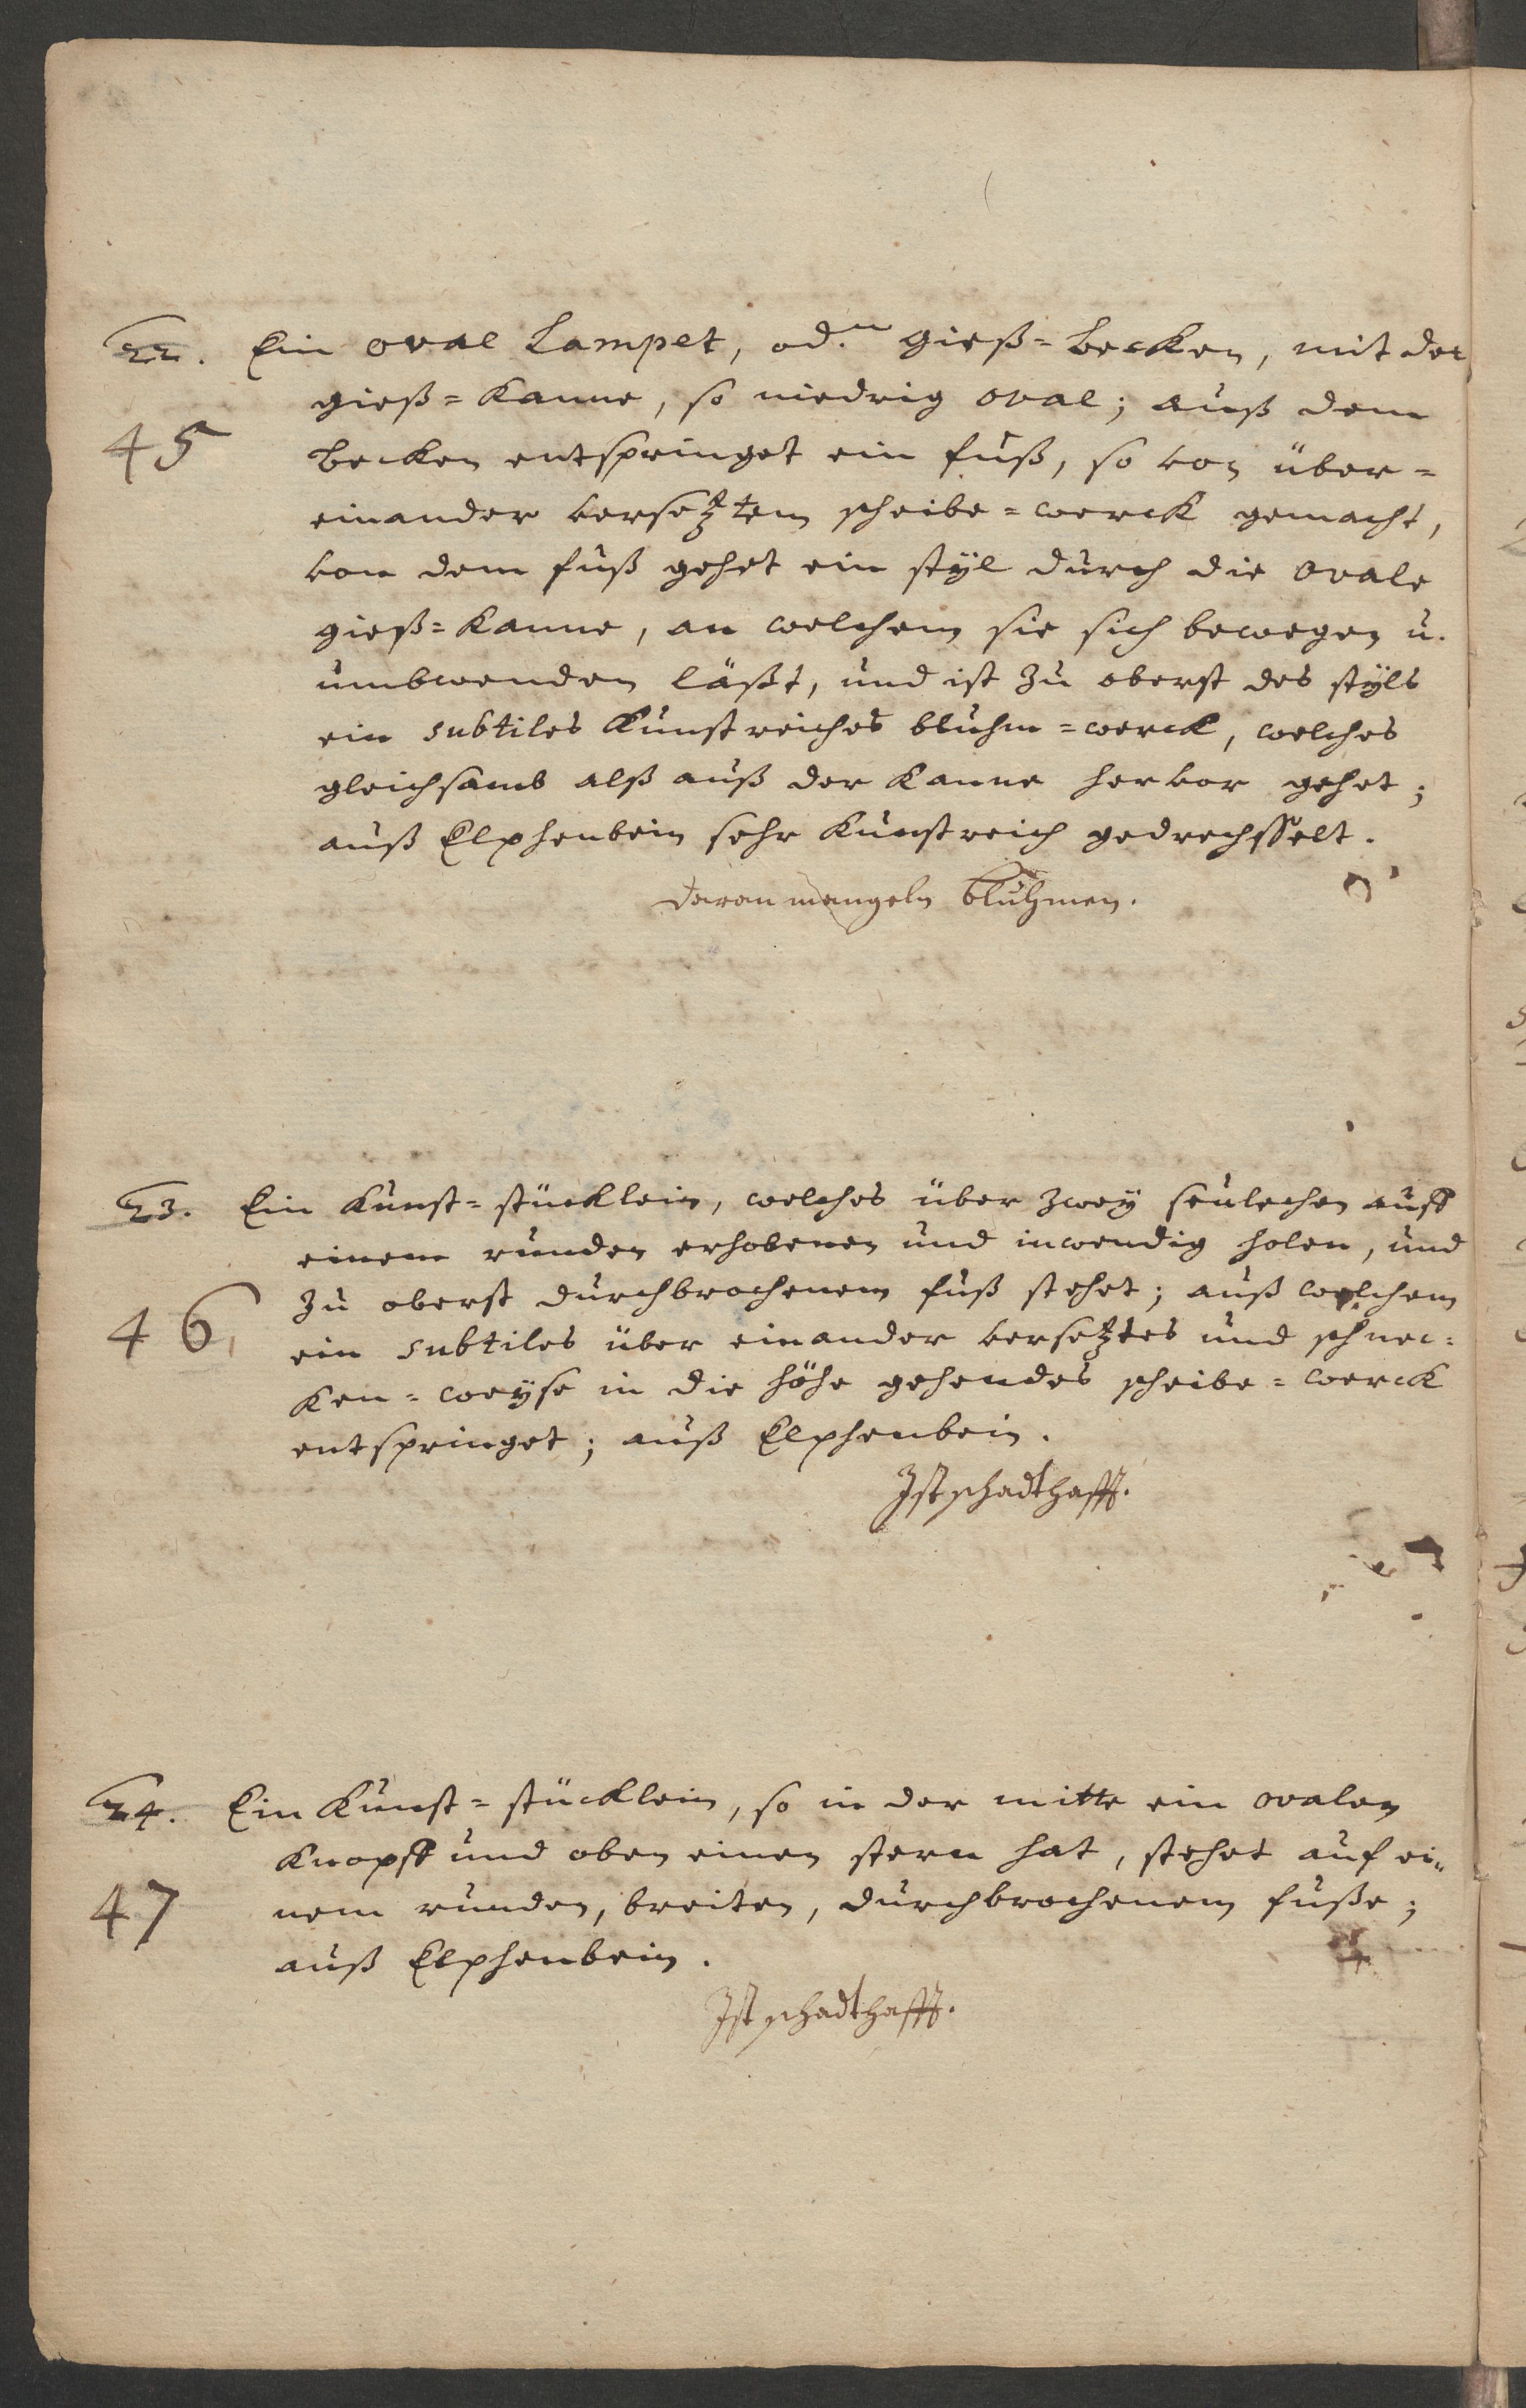 22. Ein oval Lampet, od. gieß=becken, mit der
gieß=kanne, so niedrig oval; auß dem
45
becken entspringet ein fuß, so von über=
einander versetztem scheibe=werck gemacht,
von dem fuß gehet ein styl durch die ovale
gieß=kanne, an welchem sie sich bewegen u.
umbwenden läßt, und ist zu oberst des styls
ein subtiles kunstreiches bluhm=werck, welches
gleichsamb alß auß der kanne hervor gehet;
auß Elphenbein sehr kunstreich gedrechsselt.
daran mangeln bluhmen.
23. Ein kunst=stücklein, welches über zwey seulechen auff
einem runden erhobenen und inwendig holen, und
zu oberst durchbrochenem fuß stehet; auß welchem
46
ein subtiles über einander versetztes und schnec=
ken=weyse in die höhe gehendes scheibe=werck
entspringet; auß Elphenbein.
Ist schadthafft.
24. Ein kunst=stücklein, so in der mitte ein ovalen
knopff und oben einen stern hat, stehet auf ei=
47
nem runden, breiten, durchbrochenem fuße;
auß Elphenbein.
Ist schadthafft.